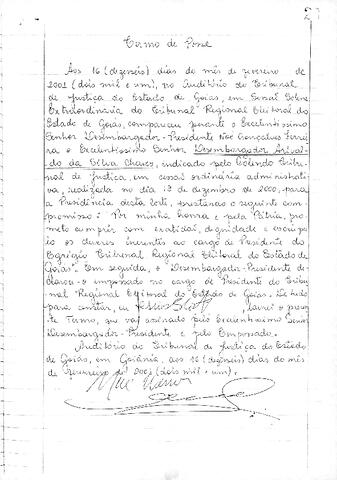 2
Termo de Posse
Aos 16 (dezesseis) dias do mês de fevereiro de
2001 (dois mil e um), no Auditório do Tribunal
de Justiça do Estado de Goiás, em Sessão Solene
Extraordinária do Tribunal Regional Eleitoral do
Estado de Goiás, compareceu perante o Excelentíssimo
Senhor Desembargador-Presidente Noé Gonçalves Ferrei
ra o Excelentíssimo Senhor Desembargador
da Silva Chaves, indicado pelo Colendo Tribu
nal de Justiça, em sessão ordinária administrati
va, realizada no dia 13 de dezembro de 2000, para
a Presidência desta Corte, prestando o seguinte com
promisso: "Por minha honra e pela Pátria, pro
meto cumprir com exatidão, dignidade e escrúpu
lo os deveres inerentes ao cargo de Presidente do
Egrégio Tribunal Regional Eleitoral do Estado de
Goiás". Em seguida, o Desembargador-Presidente de
clarou-o empossado no cargo de Presidente do Tribu
nal Regional Eleitoral do Estado de Goiás. E, nada
para constar, eu lavrei o presen
te Termo, que vai assinado pelo Excelentíssimo Senhor
Desembargador-Presidente e pelo Empossado.
Auditório do Tribunal de Justiça do Estado
de Goiás, em Goiânia, aos 16 (dezesseis) dias do mês
de fevereiro de 2001 (dois mil e um).